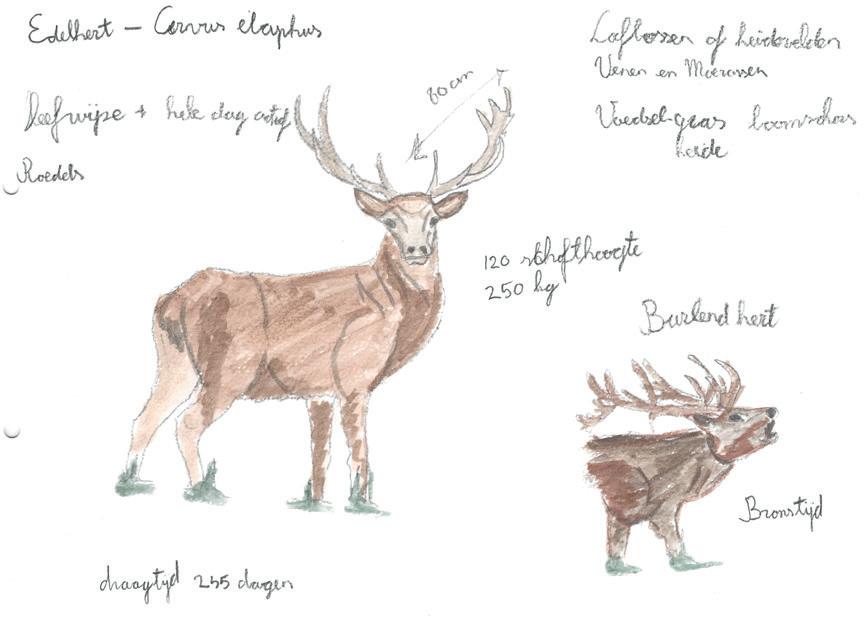 Edelhert - Cervus elaphus
Loofbossen of heidevelden
Venen en Moerassen
80 cm
Leefwijze + hele dag actief
Voedsel-gras boomschors
heide
Roedels
120 schofthoogte
250 kg
Burlend hert
Bronstijd
draagtijd 255 dagen